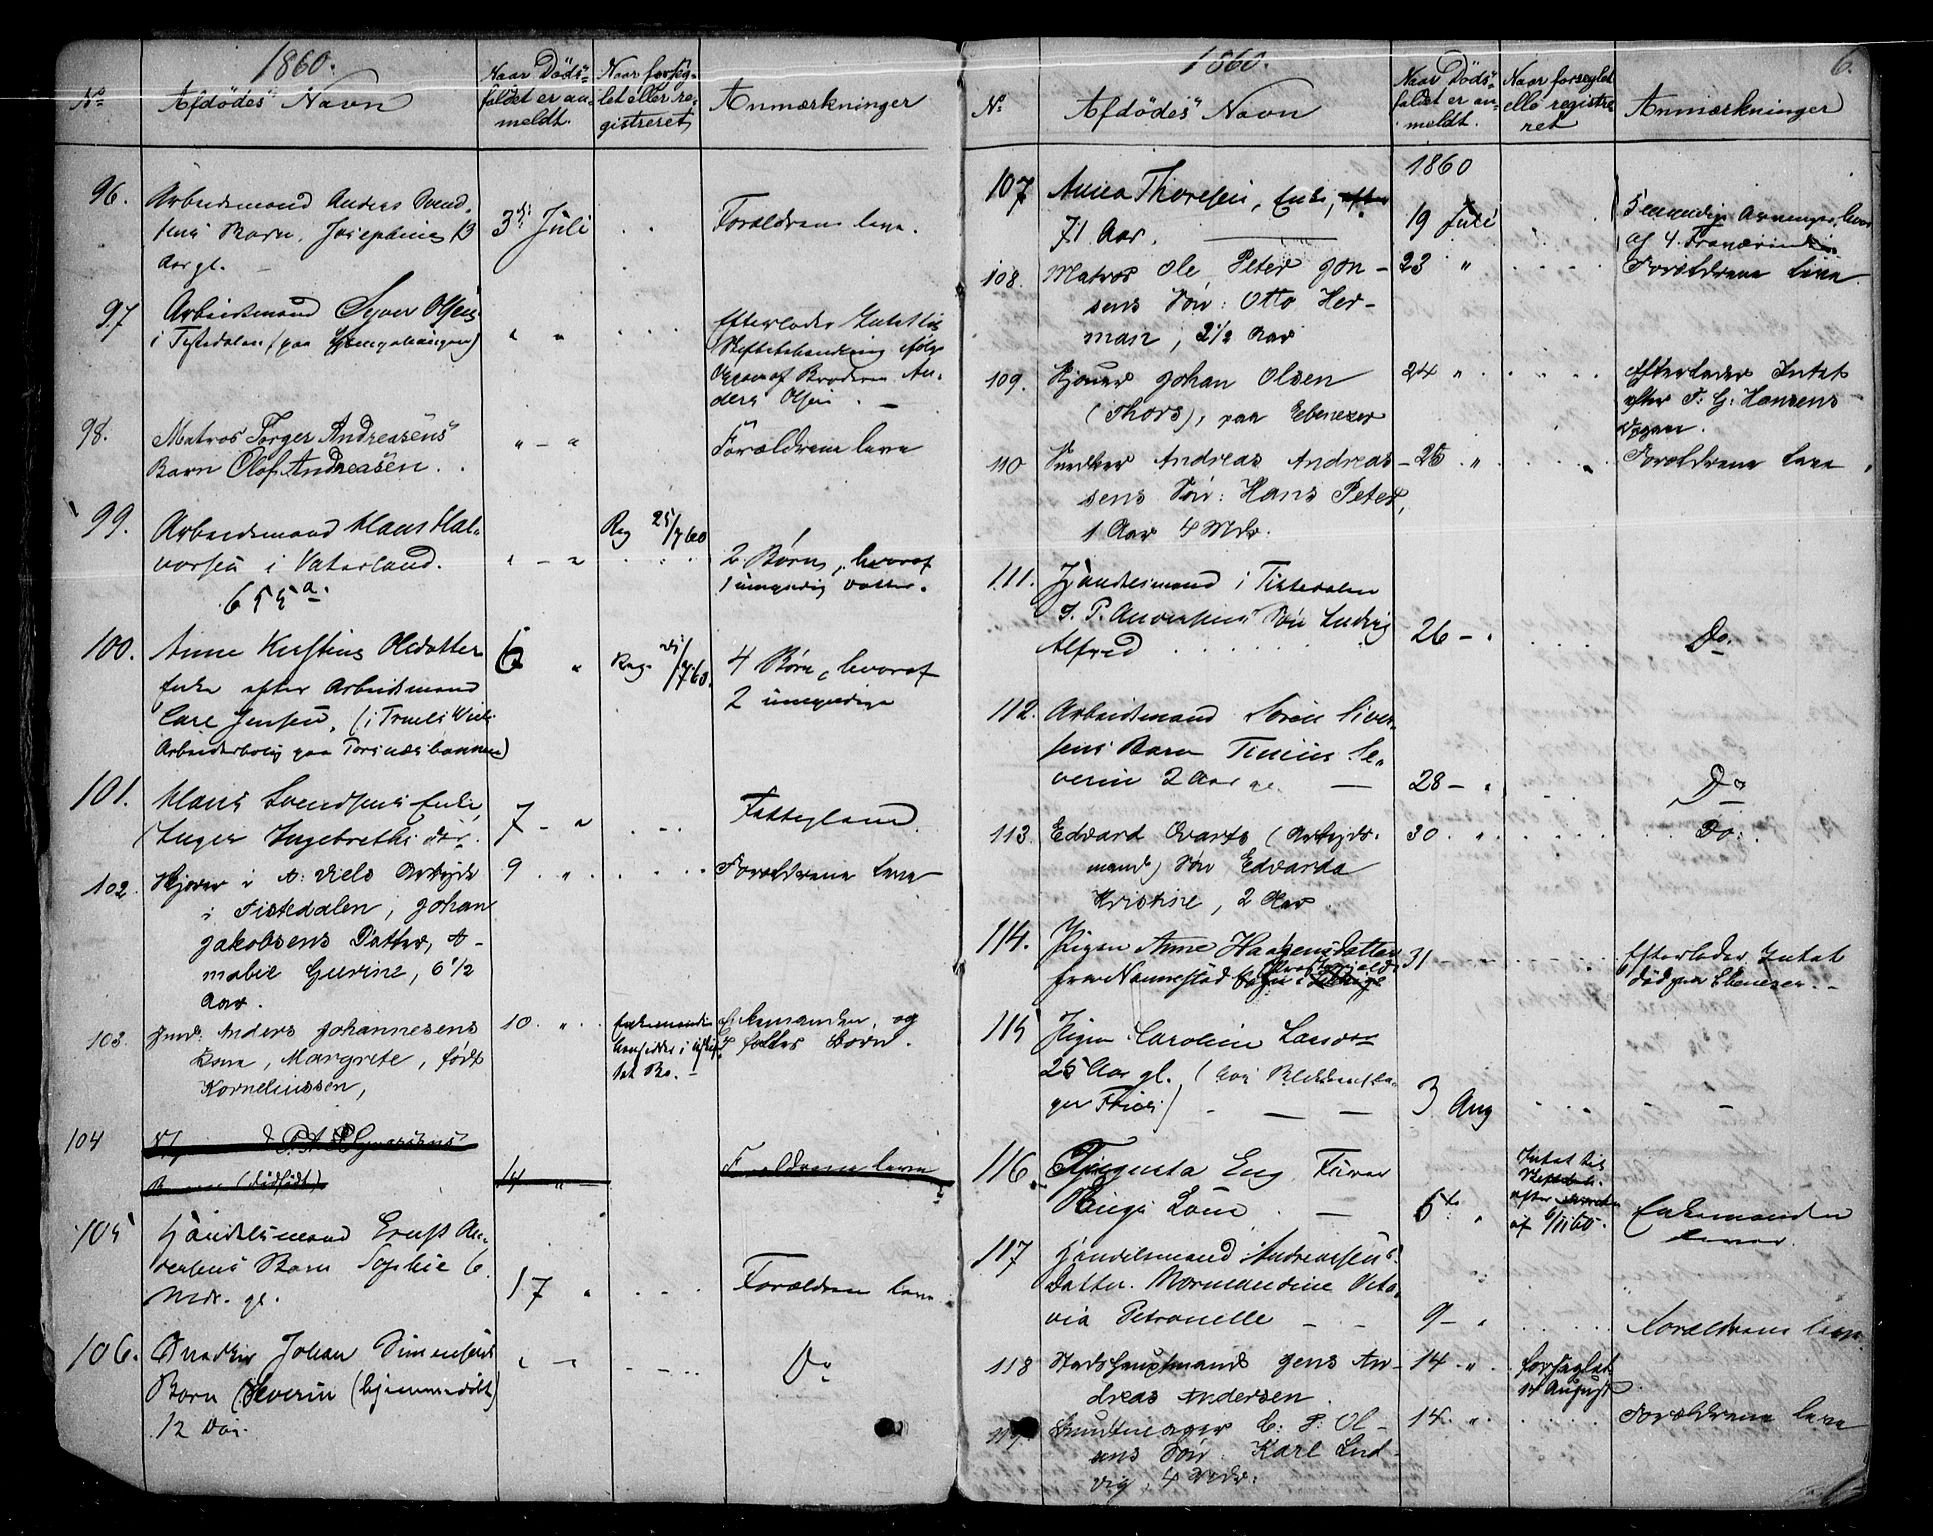 1860.
No
Afdödes Navn
Naar Döds-
faldet er an-
meldt.
Naar forseg-
let eller re-
gistreret
Anmærkninger
96.
Arbeidsmand Anders Svend-
sens Barn, Josephine 13
Aar gl.
3di Juli
Forældrene leve.
97.
Arbeidsmand Syver Olsen
i Tistedalen (paa
" "
Efterlader Intet til
Skiftebehandling ifølge
Opgave af Broderen An-
ders Olsen.
98.
Matros Torger Andreasens
Barn Olof Andreasen.
" - "
Forældrene leve
99.
Arbeidsmand Hans Hal-
vorsen i Vaterland.
655 a.
" - "
Reg 25/7 60
2 Børn, hvoraf
1 umyndig Datter.
100.
Anne Kirstine Olsdatter
Enke efter Arbeidsmand
Carl Jensen, (i Truls Wiels
Arbeiderbolig paa Torsnæsbannen)
6 "
Reg. 25/7 60.
4 Børn, hvoraf
2 umyndige
101.
Hans Svendsens Enke,
Inger Ingebrethsdär.
7 - "
Fattiglem.
102.
i A: Viels Arbejde
i Tistedalen, Johan
Jakobsens Datter, A-
mabie Gurine, 6 1/2
Aar.
9 . "
Forældrene leve
103.
Anders Johannesens
Kone, Margrete, født
Korneliussen,
10. "
Enkemanden
hensidder i uskif-
tet Bo.
Enkemanden, og
7 fælles Børn.
104
(dødfødt)
14 "
Forældrene leve
105
Handelsmand Ernst An-
dersens Barn Sophie 6
Mdr. gl.
17 "
Forældrene leve
106.
Snedker Johan Simensens
Barn Severin (hjemmedöbt)
12 Dar.
" - "
Do
1860.
6.
No
Afdödes Navn
Naar Döds-
faldet er an-
meldt.
Naar forseglet
elle registre-
ret
Anmærkninger
1860
107
Anna Thoresen, Enke,
71 Aar.
19 Juli
5 myndige Arvinger, hvor-
af 4 Fraværende
108.
Matros Ole Peter Jon-
sens Sön: Otto Her-
man, 2 1/2 Aar
23 "
Forældrene leve
109.
Johan Olsen
(Thors), paa Ebenezer
24 "
efterlader Intet
efter T. G. Hansens
Opgave.
110
Snedker Andreas Andrea-
sens Sön: Hans Peter,
1 Aar 4 Mdr.
25 "
Forældrene leve
111.
Handelsmand i Tistedalen
J. P. Andersens Sön Ludvig
Alfred
26 - "
Do
112.
Arbeidsmand Sören Siver-
sens Barn Se-
verin 2 Aar gl.
28 - "
Do
113
Edvard Svarts (Arbeids-
mand) Sön Edvarda
Kristine, 2 Aar
30. "
Do.
114.
Pigen Anne Haagensdatter
fra Nannestad
31 -
Efterlader Intet
död paa Ebenezer.
115
Pigen Caroline Larsen
25 Aar gl. (hos
ger Friis)
3 Aug
116.
Augusta Eng
5te "
Intet til
Skifte
efter
af 6/11 60.
Enkemanden
lever.
117
Handelsmand Andreassens
Datter. Normandine Octa-
via Petronelle
9 - "
Forældrene leve.
118
Stadshauptmand Jens An-
dreas Andersen
14 . "
forseglet
14 August
119.
C: P: Ol-
sens Sön: Karl Lud-
vig, 4 Mdr.
14. "
Forældrene leve